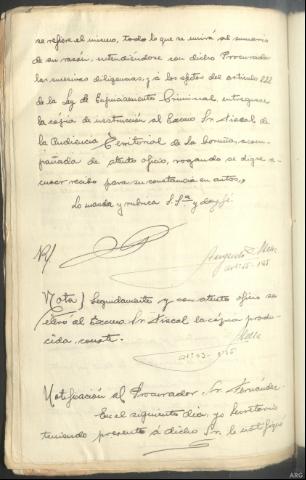 se refiere el mismo, todo lo que se unirá al sumario
de su razón, entendiéndose con dicho Procurador
las sucesivas diligencias, y á los efectos del artículo 222
de la Ley de Enjuiciamiento Criminal, entreguese
la copia de instrucción al Excmo Sr. Fiscal de
la Audiencia Territorial de La Coruña, acom-
pañada de atento oficio, rogando se digne a-
cusar recibo para su constancia en autos.,
Lo manda y rubrica S.Sª y doy fé.
Nota) Seguidamente y con atento oficio se
elevó al Excmo Sr Fiscal la copia produ-
cida, consté.
Notificación al Procurador Sr Fernandez
En el siguiente dia, yo Secretario
teniendo presente á dicho Sr. le notifiqué